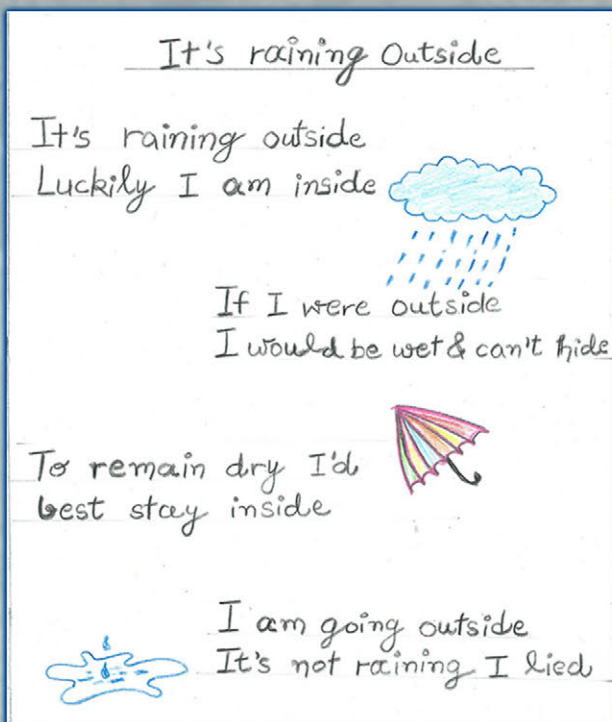 It's raining Outside
It's raining outside
Luckily I am inside
If I were outside
I would be wet & can't hide
To remain dry I'd
best stay inside
I am going outside
It's not raining I lied